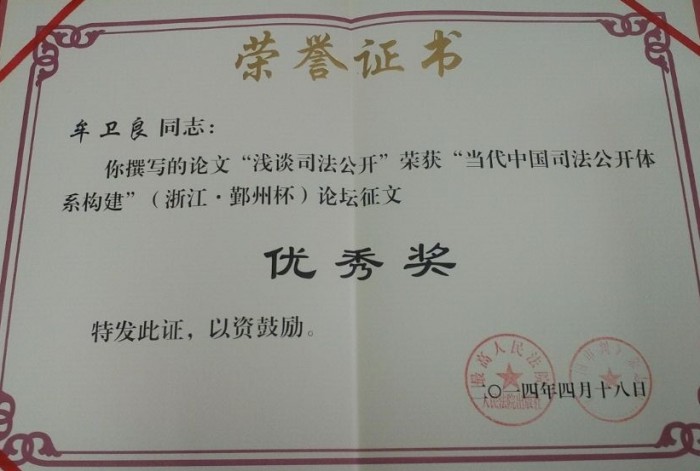 荣誉证书
牟卫良同志：
你撰写的论文“浅谈司法公开”荣获“当代中国司法公开体
系构建”（浙江·鄞州杯）论坛征文
优秀奖
特发此证，以资鼓励。
最高人民法院
人民法院出版社
二〇一四年四月十八日